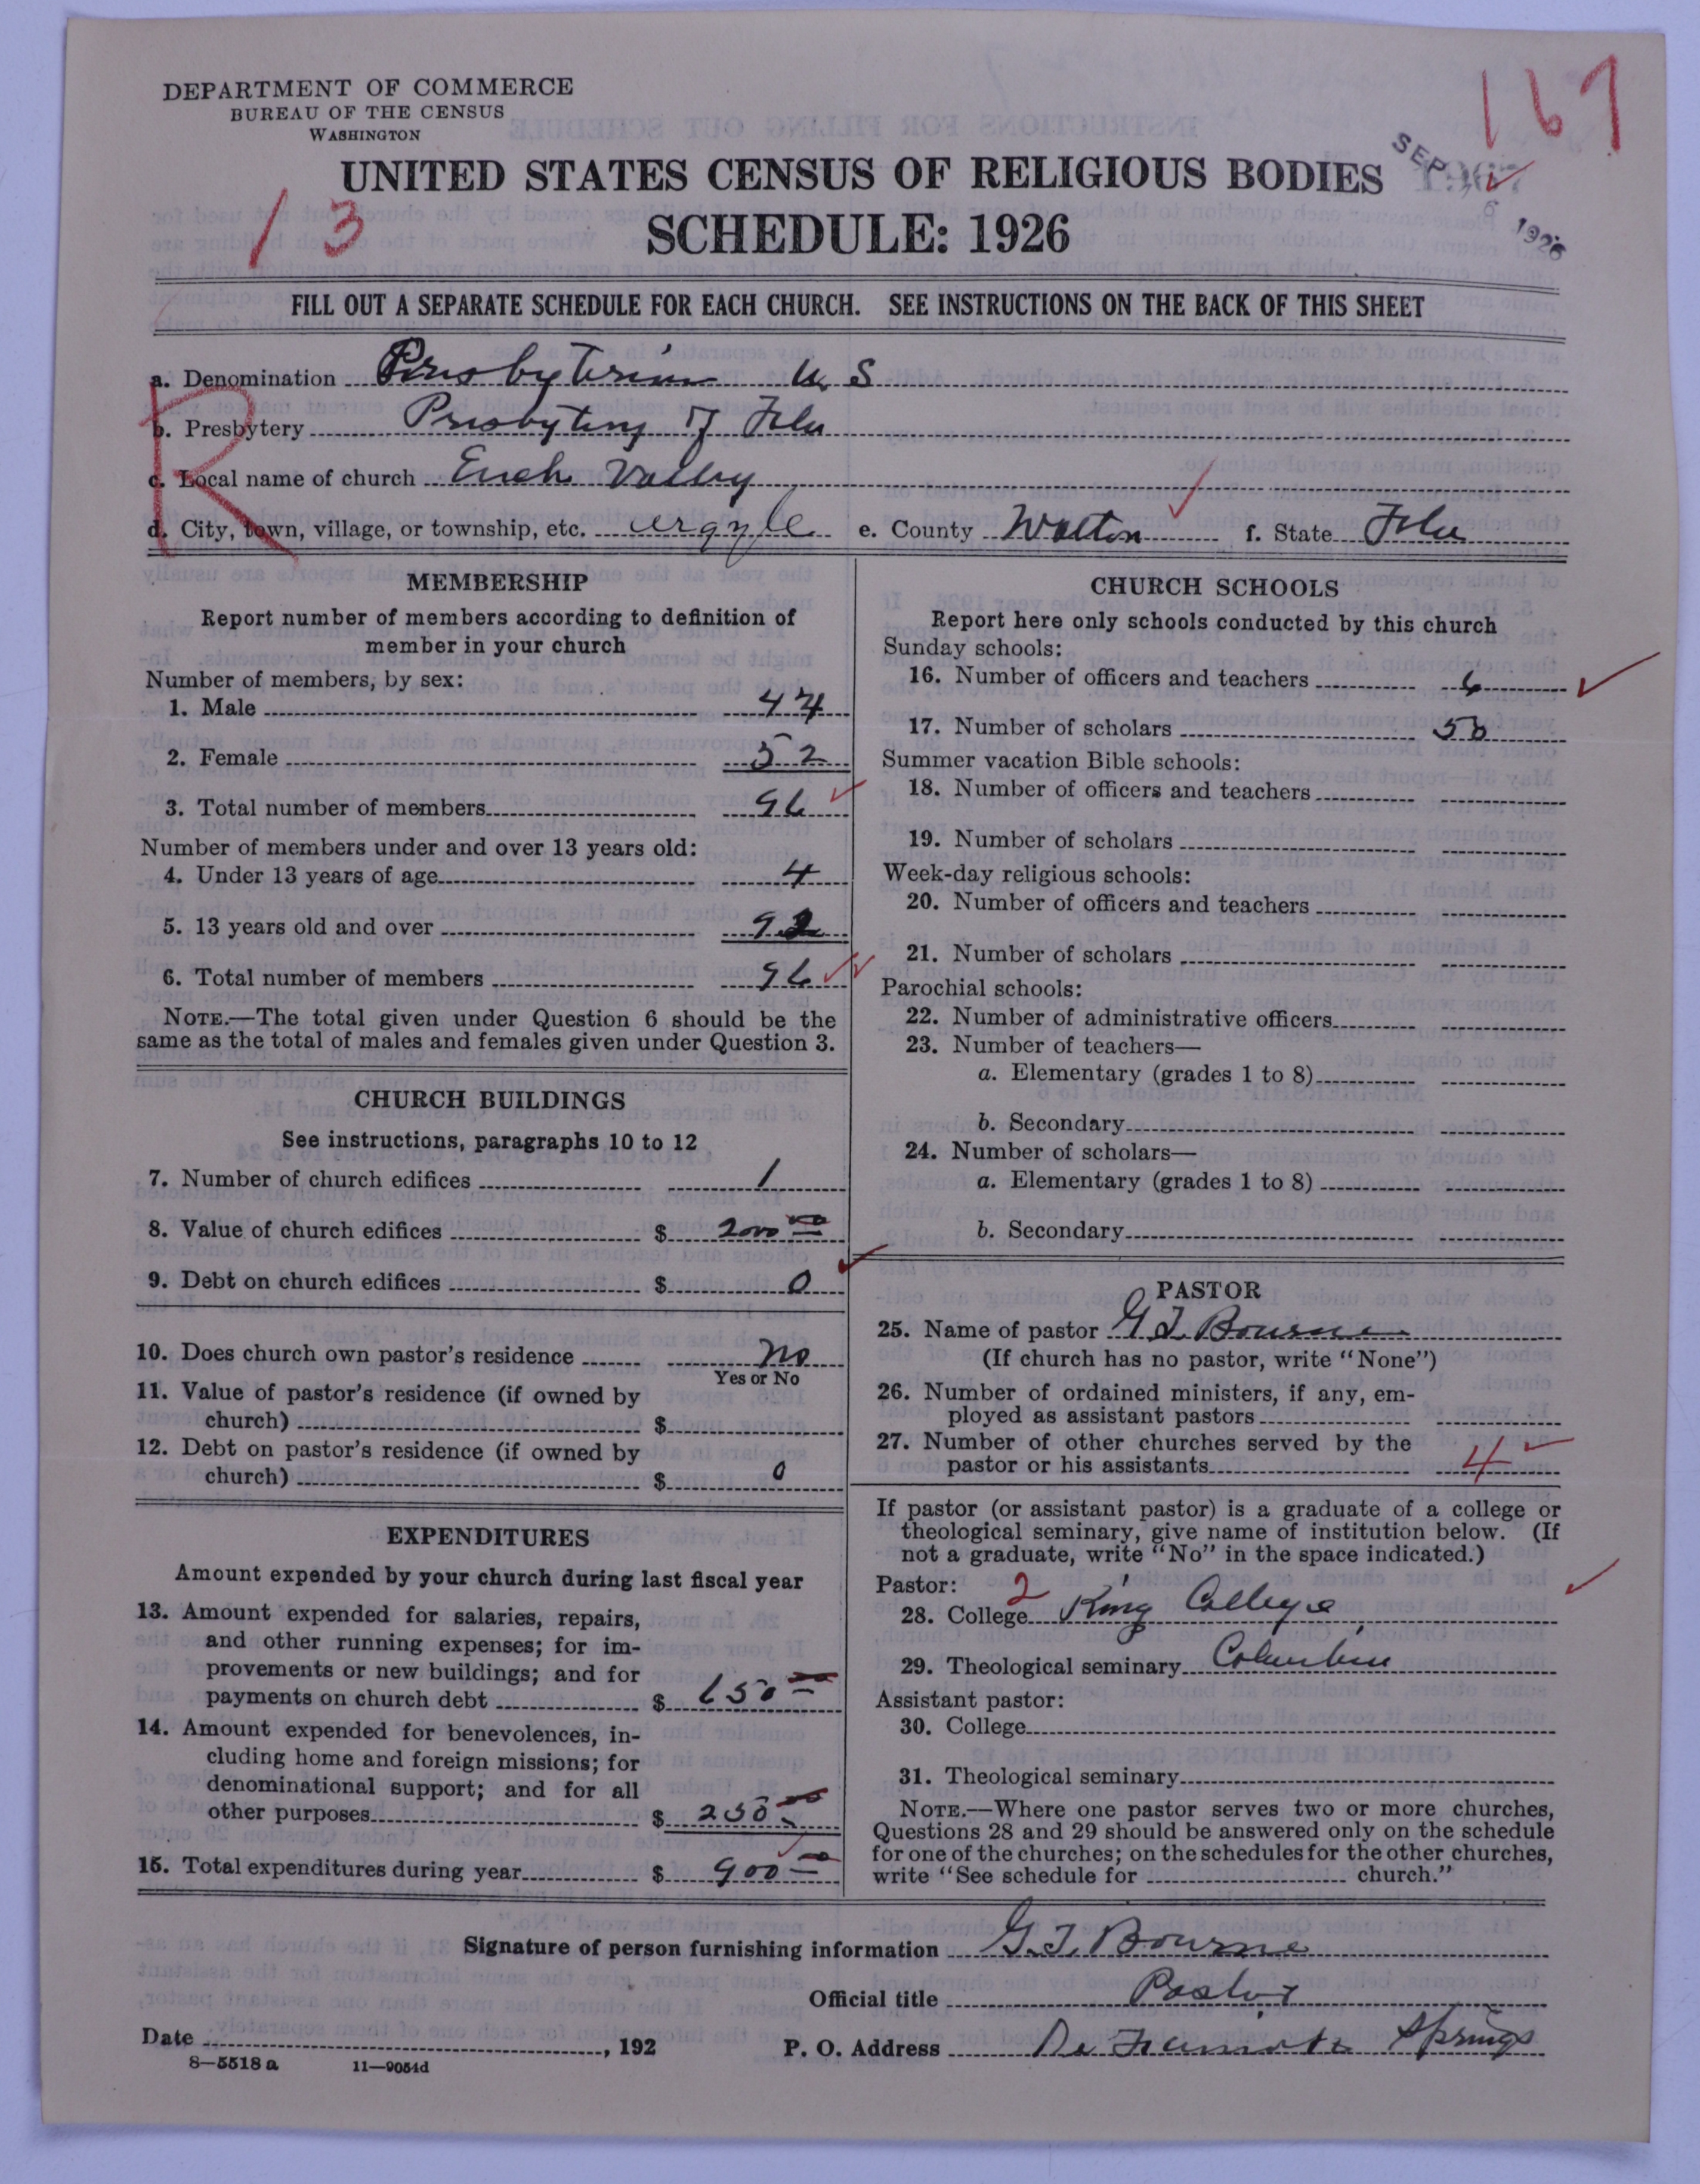 DEPARTMENT OF COMMERCE
BUREAU OF THE CENSUS
WASHINGTON
167
UNITED STATES CENSUS OF RELIGIOUS BODIES
SEP 1926
13
SCHEDULE: 1926
FILL OUT A SEPARATE SCHEDULE FOR EACH CHURCH. SEE INSTRUCTIONS ON THE BACK OF THIS SHEET
R
a. Denomination Presbyterian U S
b. Presbytery Presbytery of Fla
c. Local name of church Euch Valley
d. City, town, village, or township, etc. Argyle e. County Walton f. State Fla
MEMBERSHIP
Report number of members according to definition of
member in your church
Number of members, by sex:
1. Male 44
2. Female 52
3. Total number of members 96
Number of members under and over 13 years old:
4. Under 13 years of age 4
5. 13 years old and over 92
6. Total number of members 96
NOTE.—The total given under Question 6 should be the
same as the total of males and females given under Question 3.
CHURCH BUILDINGS
See instructions, paragraphs 10 to 12
7. Number of church edifices 1
8. Value of church edifices $ 2000 00
9. Debt on church edifices $ 0
10. Does church own pastor's residence No
Yes or No
11. Value of pastor's residence (if owned by
church) $
12. Debt on pastor's residence (if owned by
church) $ 0
EXPENDITURES
Amount expended by your church during last fiscal year
13. Amount expended for salaries, repairs,
and other running expenses; for im-
provements or new buildings; and for
payments on church debt $ 650 00
14. Amount expended for benevolences, in-
cluding home and foreign missions; for
denominational support; and for all
other purposes $ 250 00
15. Total expenditures during year $ 900 00
CHURCH SCHOOLS
Report here only schools conducted by this church
Sunday schools:
16. Number of officers and teachers 6
17. Number of scholars 56
Summer vacation Bible schools:
18. Number of officers and teachers
19. Number of scholars
Week-day religious schools:
20. Number of officers and teachers
21. Number of scholars
Parochial schools:
22. Number of administrative officers
23. Number of teachers—
a. Elementary (grades 1 to 8)
b. Secondary
24. Number of scholars—
a. Elementary (grades 1 to 8)
b. Secondary
PASTOR
25. Name of pastor G. T. Bourne
(If church has no pastor, write "None")
26. Number of ordained ministers, if any, em-
ployed as assistant pastors
27. Number of other churches served by the
pastor or his assistants 4
If pastor (or assistant pastor) is a graduate of a college or
theological seminary, give name of institution below. (If
not a graduate, write "No" in the space indicated.)
Pastor: 2
28. College King College
29. Theological seminary Columbia
Assistant pastor:
30. College
31. Theological seminary
NOTE.—Where one pastor serves two or more churches,
Questions 28 and 29 should be answered only on the schedule
for one of the churches; on the schedules for the other churches,
write "See schedule for church."
Signature of person furnishing information G. T. Bourne
Official title Pastor
Date , 192 P. O. Address De Funiak Springs
8—5518 a 11—9054d